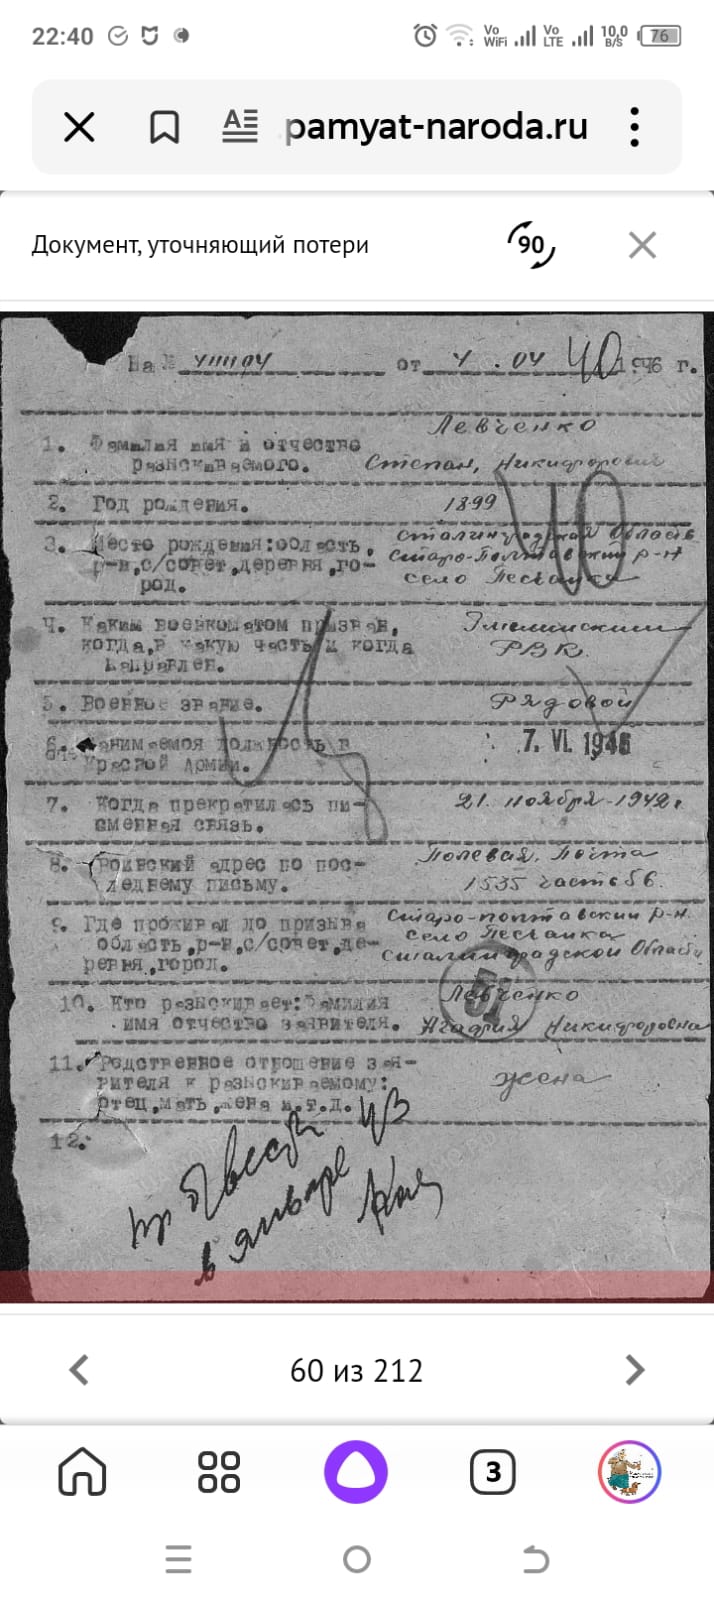 22:40 Vo WiFi Vo LTE 10,0 B/S 76
pamyat-naroda.ru
Документ, уточняющий потери 90
На № 411104 от 4.04 40 1946 г.
Левченко
1. Фамилия имя и отчество
разыскиваемого. Степан, Никифорович
2. Год рождения. 1899
3. Место рождения:область, Сталинградская Область
р-н,с/совет,деревня,го- Старо-Полтавский р-н
род. село Песчанка
40
4. Каким военкоматом призван,
когда,в какую часть и когда РВК.
направлен.
5. Военное звание. Рядовой
6. Занимаемая должность в 7. VI. 1946
Красной Армии.
7. Когда прекратилась пи- 21. ноября-1942г
сменная связь.
8. Воинский адрес по пос- Полевая, Почта
леднему письму. 1535 часть 56.
9. Где проживал до призыва Старо-полтавский р-н.
область,р-н,с/совет,де- село Песчанка
ревня,город. Сталинградской Области
51
10. Кто разыскивает:Фамилия Левченко
имя отчество заявителя. Агафия Никифоровна
11. Родственное отношение зая-
вителя к разыскиваемому: жена
отец,мать,жена и.т.д.
12.
пр 43
в январе
60 из 212
3